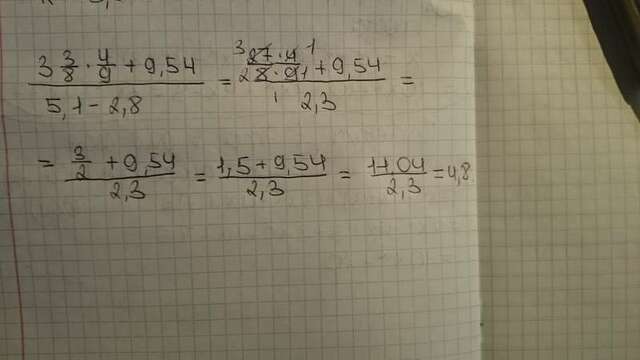 (3 3/8 · 4/9 + 9,54) / (5,1 - 2,8) = ((27 · 4)/(8 · 9) + 9,54) / 2,3 =
= (3/2 + 9,54) / 2,3 = (1,5 + 9,54) / 2,3 = 11,04 / 2,3 = 4,8